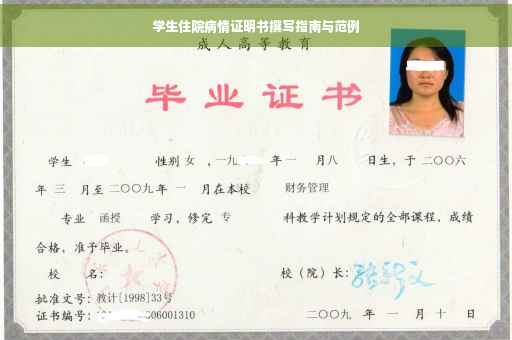 学生住院病情证明书撰写指南与范例
成人高等教育
毕业证书
学生 性别 女 ，一九 年一 月八 日生，于二〇〇六
年 三 月至二〇〇九年 一 月在本校 财务管理
专业 函授 学习，修完 专 科教学计划规定的全部课程，成绩
合格，准予毕业。
校 名： 校（院）长：
批准文号：教计[1998]33号
证书编号： 06001310 二〇〇九 年 一 月 十 日